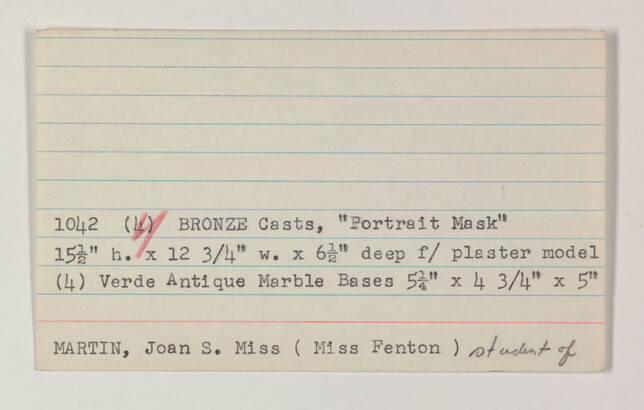 1042 (4) BRONZE Casts, "Portrait Mask"
15½" h. x 12 3/4" w. x 6½" deep f/ plaster model
(4) Verde Antique Marble Bases 5¼" x 4 3/4" x 5"
MARTIN, Joan S. Miss ( Miss Fenton ) student of